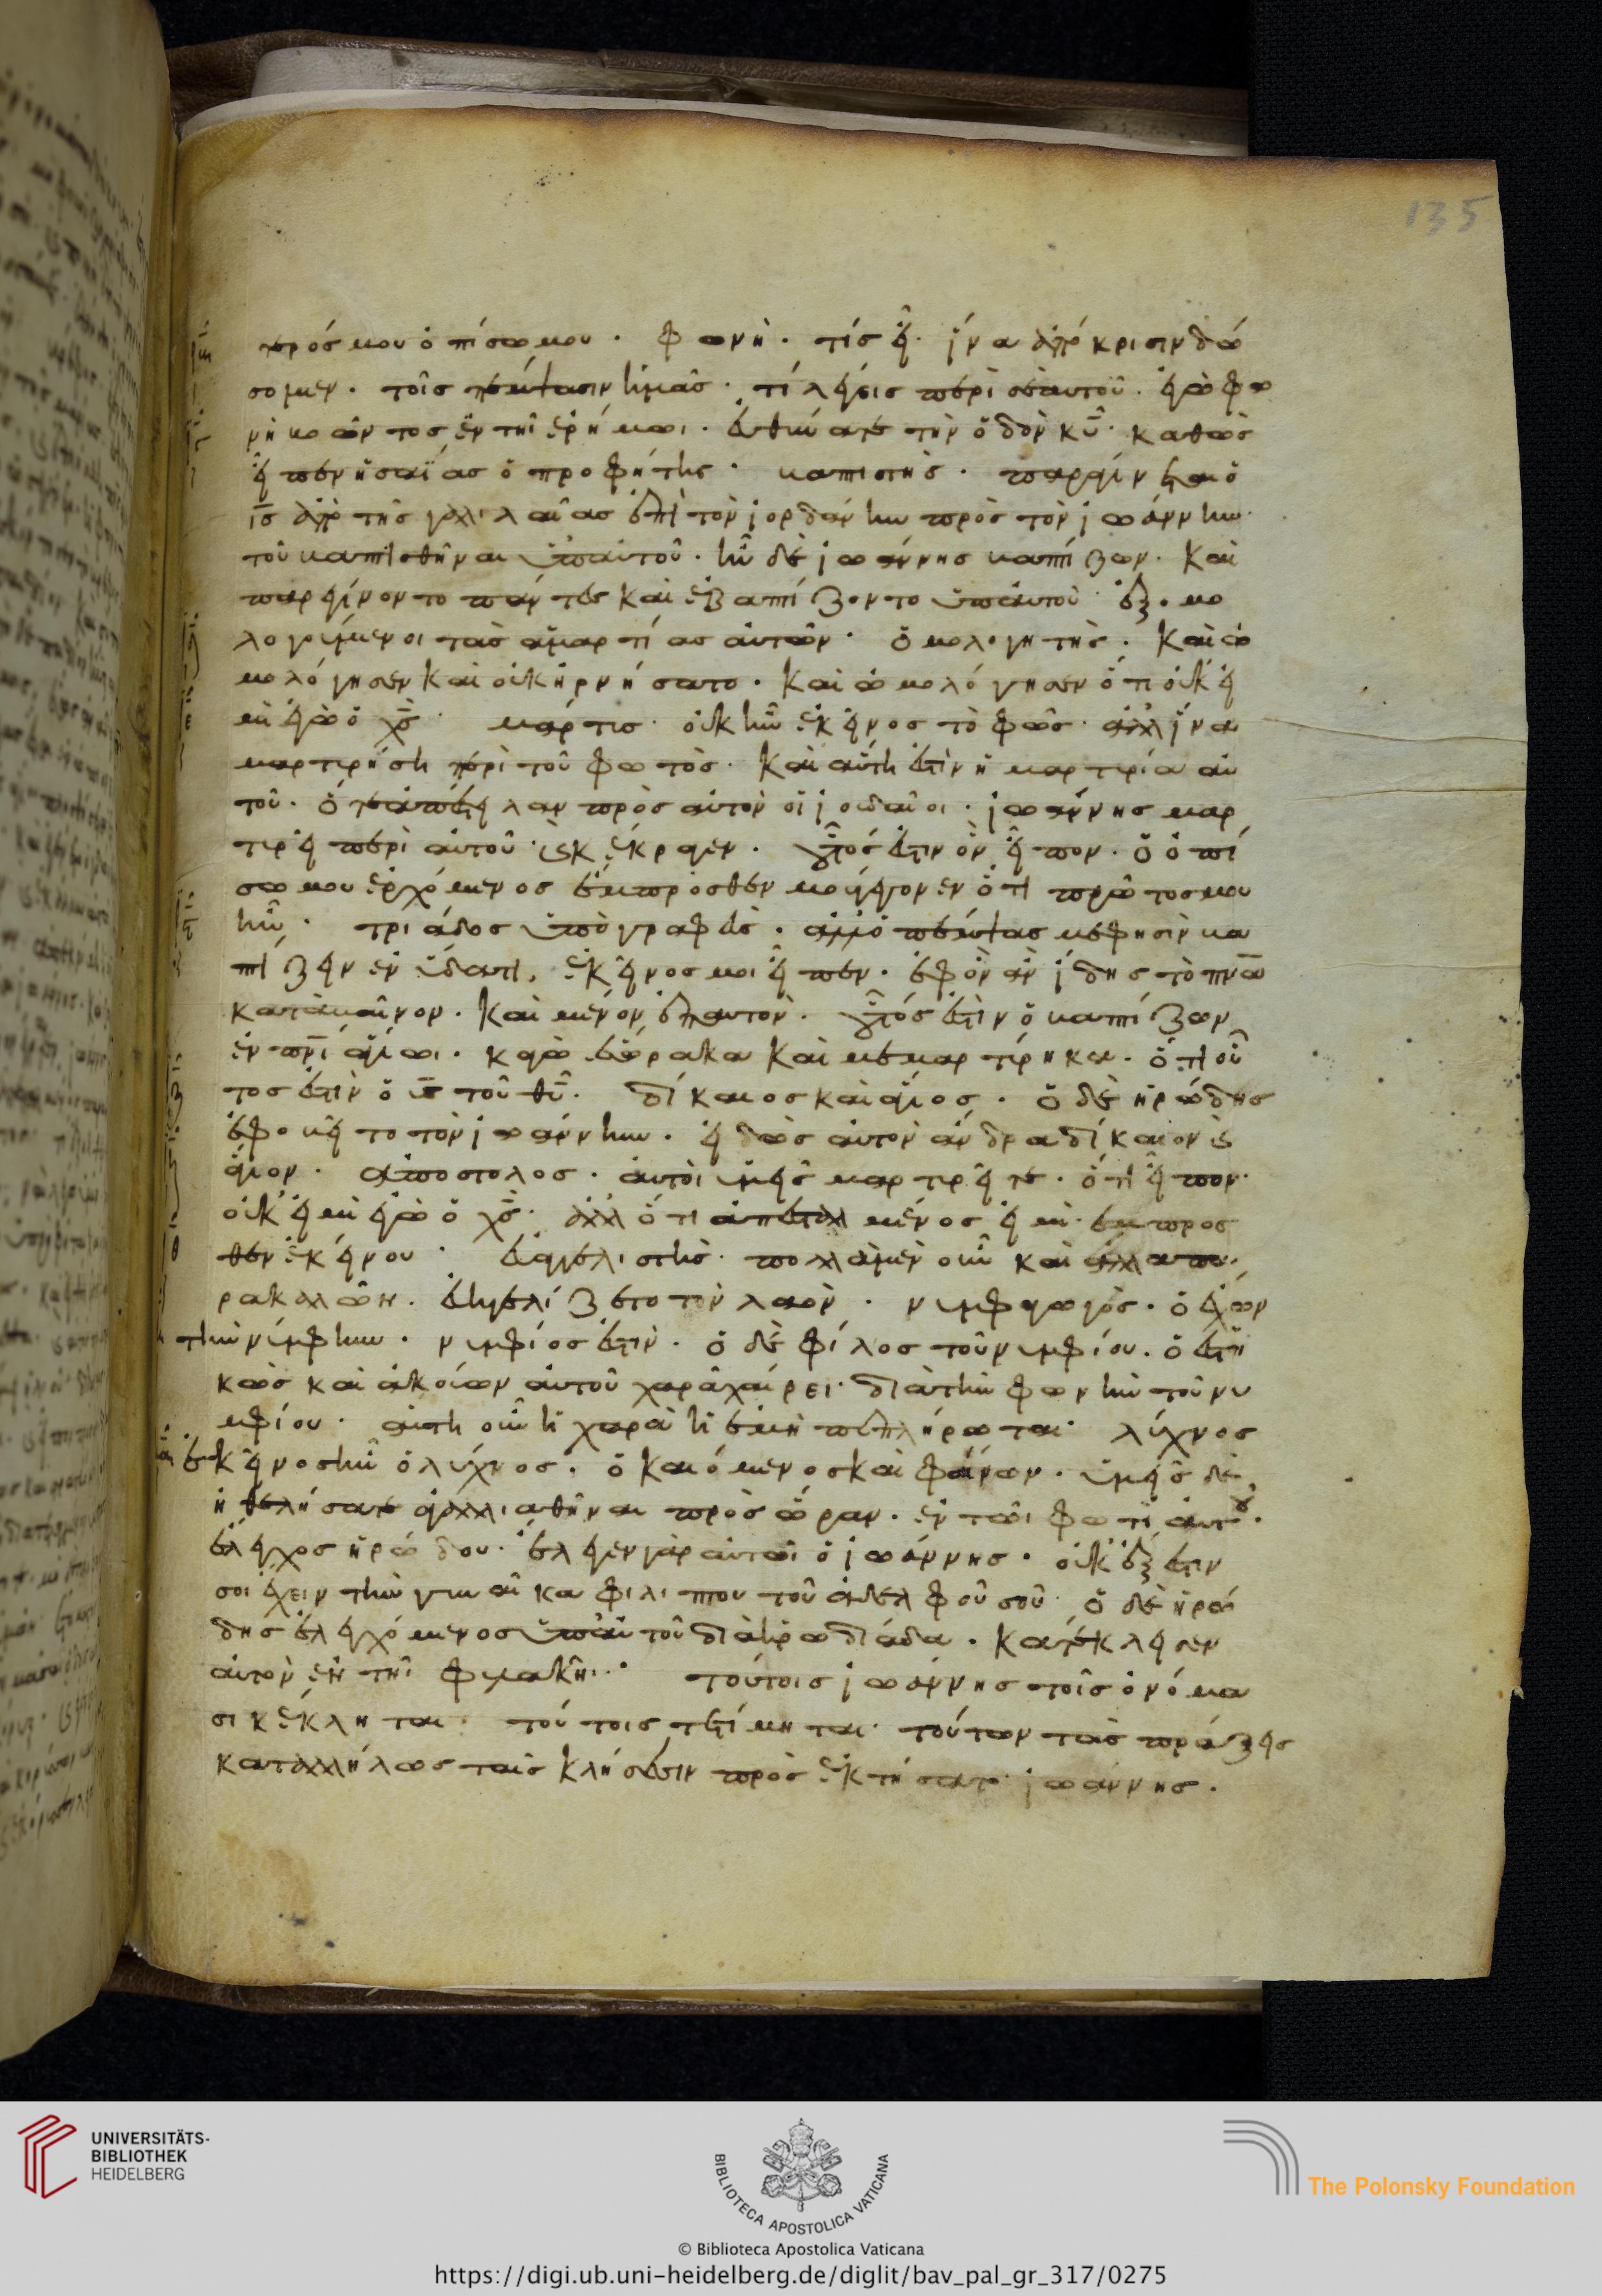 135
πρός μου ὀπίσω μου · φωνὴ · τίς εἶ · ἵνα ἀπόκρισιν δώ
σομεν · τοῖς πέμψασιν ἡμᾶς · τί λέγεις περὶ σεαυτοῦ · ἐγὼ φω
νὴ βοῶντος ἐν τῆι ἐρήμωι · εὐθύνατε τὴν ὁδὸν κ̅υ̅ · καθὼς
εἶπεν ἡσαΐας ὁ προφήτης · βαπτιστὴς · παραγίνεται ὁ
ι̅ς̅ ἀπὸ τῆς γαλιλαίας ἐπὶ τὸν ἰορδάνην πρὸς τὸν ἰωάννην
τοῦ βαπτισθῆναι ὑπ αὐτοῦ · ἦν δὲ ἰωάννης βαπτίζων · Καὶ
παρεγίνοντο πάντες καὶ ἐβαπτίζοντο ὑπ αὐτοῦ · ἐξομο
λογούμενοι τὰς ἁμαρτίας αὐτῶν · ὁμολογητὴς · Καὶ ὡ
μολόγησεν καὶ οὐκ ἠρνήσατο · καὶ ὡμολόγησεν ὅτι οὐκ εἰ
μὶ ἐγὼ ὁ χ̅ς̅ · μάρτις · οὐκ ἦν ἐκεῖνος τὸ φῶς · ἀλλ ἵνα
μαρτιρήση περὶ τοῦ φωτὸς · Καὶ αὕτη ἐστὶν ἡ μαρτιρία αὐ
τοῦ · ὅτε ἀπέστειλαν πρὸς αὐτὸν οἱ ἰουδαῖοι · ἰωάννης μαρ
τιρεῖ περὶ αὐτοῦ · καὶ κέκραγεν · οὗτός ἐστιν ὃν εἶπον · ὁ ὀπί
σω μου ἐρχόμενος ἔμπροσθεν μου γέγονεν ὅτι πρῶτος μου
ἦν · τριάδος ὑπογραφεὺς · ἀλλ ὁ πέμψας με φησὶν βα
πτίζειν ἐν ὕδατι, ἐκεῖνος μοι εἶπεν · ἐφ ὃν ἂν ἴδης τὸ π̅ν̅α̅
καταβαῖνον · Καὶ μένον ἐπ αυτὸν · οὗτός ἐστὶν ὁ βαπτίζων
ἐν π̅ν̅ι̅ ἁγίωι · κἀγὼ ἑώρακα καὶ μεμαρτίρηκα · ὅτι οὗ
τος ἐστὶν ὁ υ̅ς̅ τοῦ θ̅υ̅ · δίκαιος καὶ ἅγιος · ὁ δὲ ἡρώδης
ἐφοβεῖτο τὸν ἰωάννην · εἰδὼς αὐτὸν ἄνδρα δίκαιον καὶ
ἅγιον · ἀπόστολος · αὐτοὶ ὑμεῖς μαρτιρεῖτε · ὅτι εἶπον
οὐκ εἰμὶ ἐγὼ ὁ χ̅ς̅ · ἀλλ ὅτι ἀπεσταλμένος εἰμὶ ἔμπροσ
θεν ἐκείνου · εὐαγγελιστὴς · πολλὰ μὲν οὖν καὶ ἄλλα πα
ρακαλῶν · εὐηγγελίζετο τὸν λαὸν · νυμφαγωγὸς · ὁ ἔχων
τὴν νύμφην · νυμφίος ἐστὶν · ὁ δὲ φίλος τοῦ νυμφίου · ὁ ἑστη
κὼς καὶ ἀκούων αὐτοῦ χαρᾶ χαίρει · διὰ τὴν φωνὴν τοῦ νυ
μφίου · αὕτη οὖν ἡ χαρὰ ἡ ἐμὴ πεπλήρωται · λύχνος
ἐκεῖνος ἦν ὁ λύχνος · ὁ καιόμενος καὶ φαίνων · ὑμεῖς δὲ
ἠθελήσατε ἀγαλλιαθῆναι πρὸς ὥραν · ἐν τῶι φωτὶ αὐτοῦ ·
ἔλεγχος ἡρώδου · ἔλεγεν γὰρ αὐτῶι ὁ ἰωάννης · οὐκ ἔξεστιν
σοι ἔχειν τὴν γυναῖκα φιλίππου τοῦ ἀδελφοῦ σοῦ · ὁ δὲ ἡρώ
δης ἐλεγχόμενος ὑπ αὐτοῦ διὰ ἡρωδιάδα · κατέκλησεν
αὐτὸν ἐν τῆι φυλακῆι · τούτοις ἰωάννης τοῖς ὀνόμα
σι κέκληται · τούτοις τετίμηται · τούτων τὰς πράξεις
καταλλήλως ταῖς κλήσεσιν προσεκτήσατο ἰωάννης ·
UNIVERSITÄTS-
BIBLIOTHEK
HEIDELBERG
BIBLIOTECA APOSTOLICA VATICANA
The Polonsky Foundation
© Biblioteca Apostolica Vaticana
https://digi.ub.uni-heidelberg.de/diglit/bav_pal_gr_317/0275